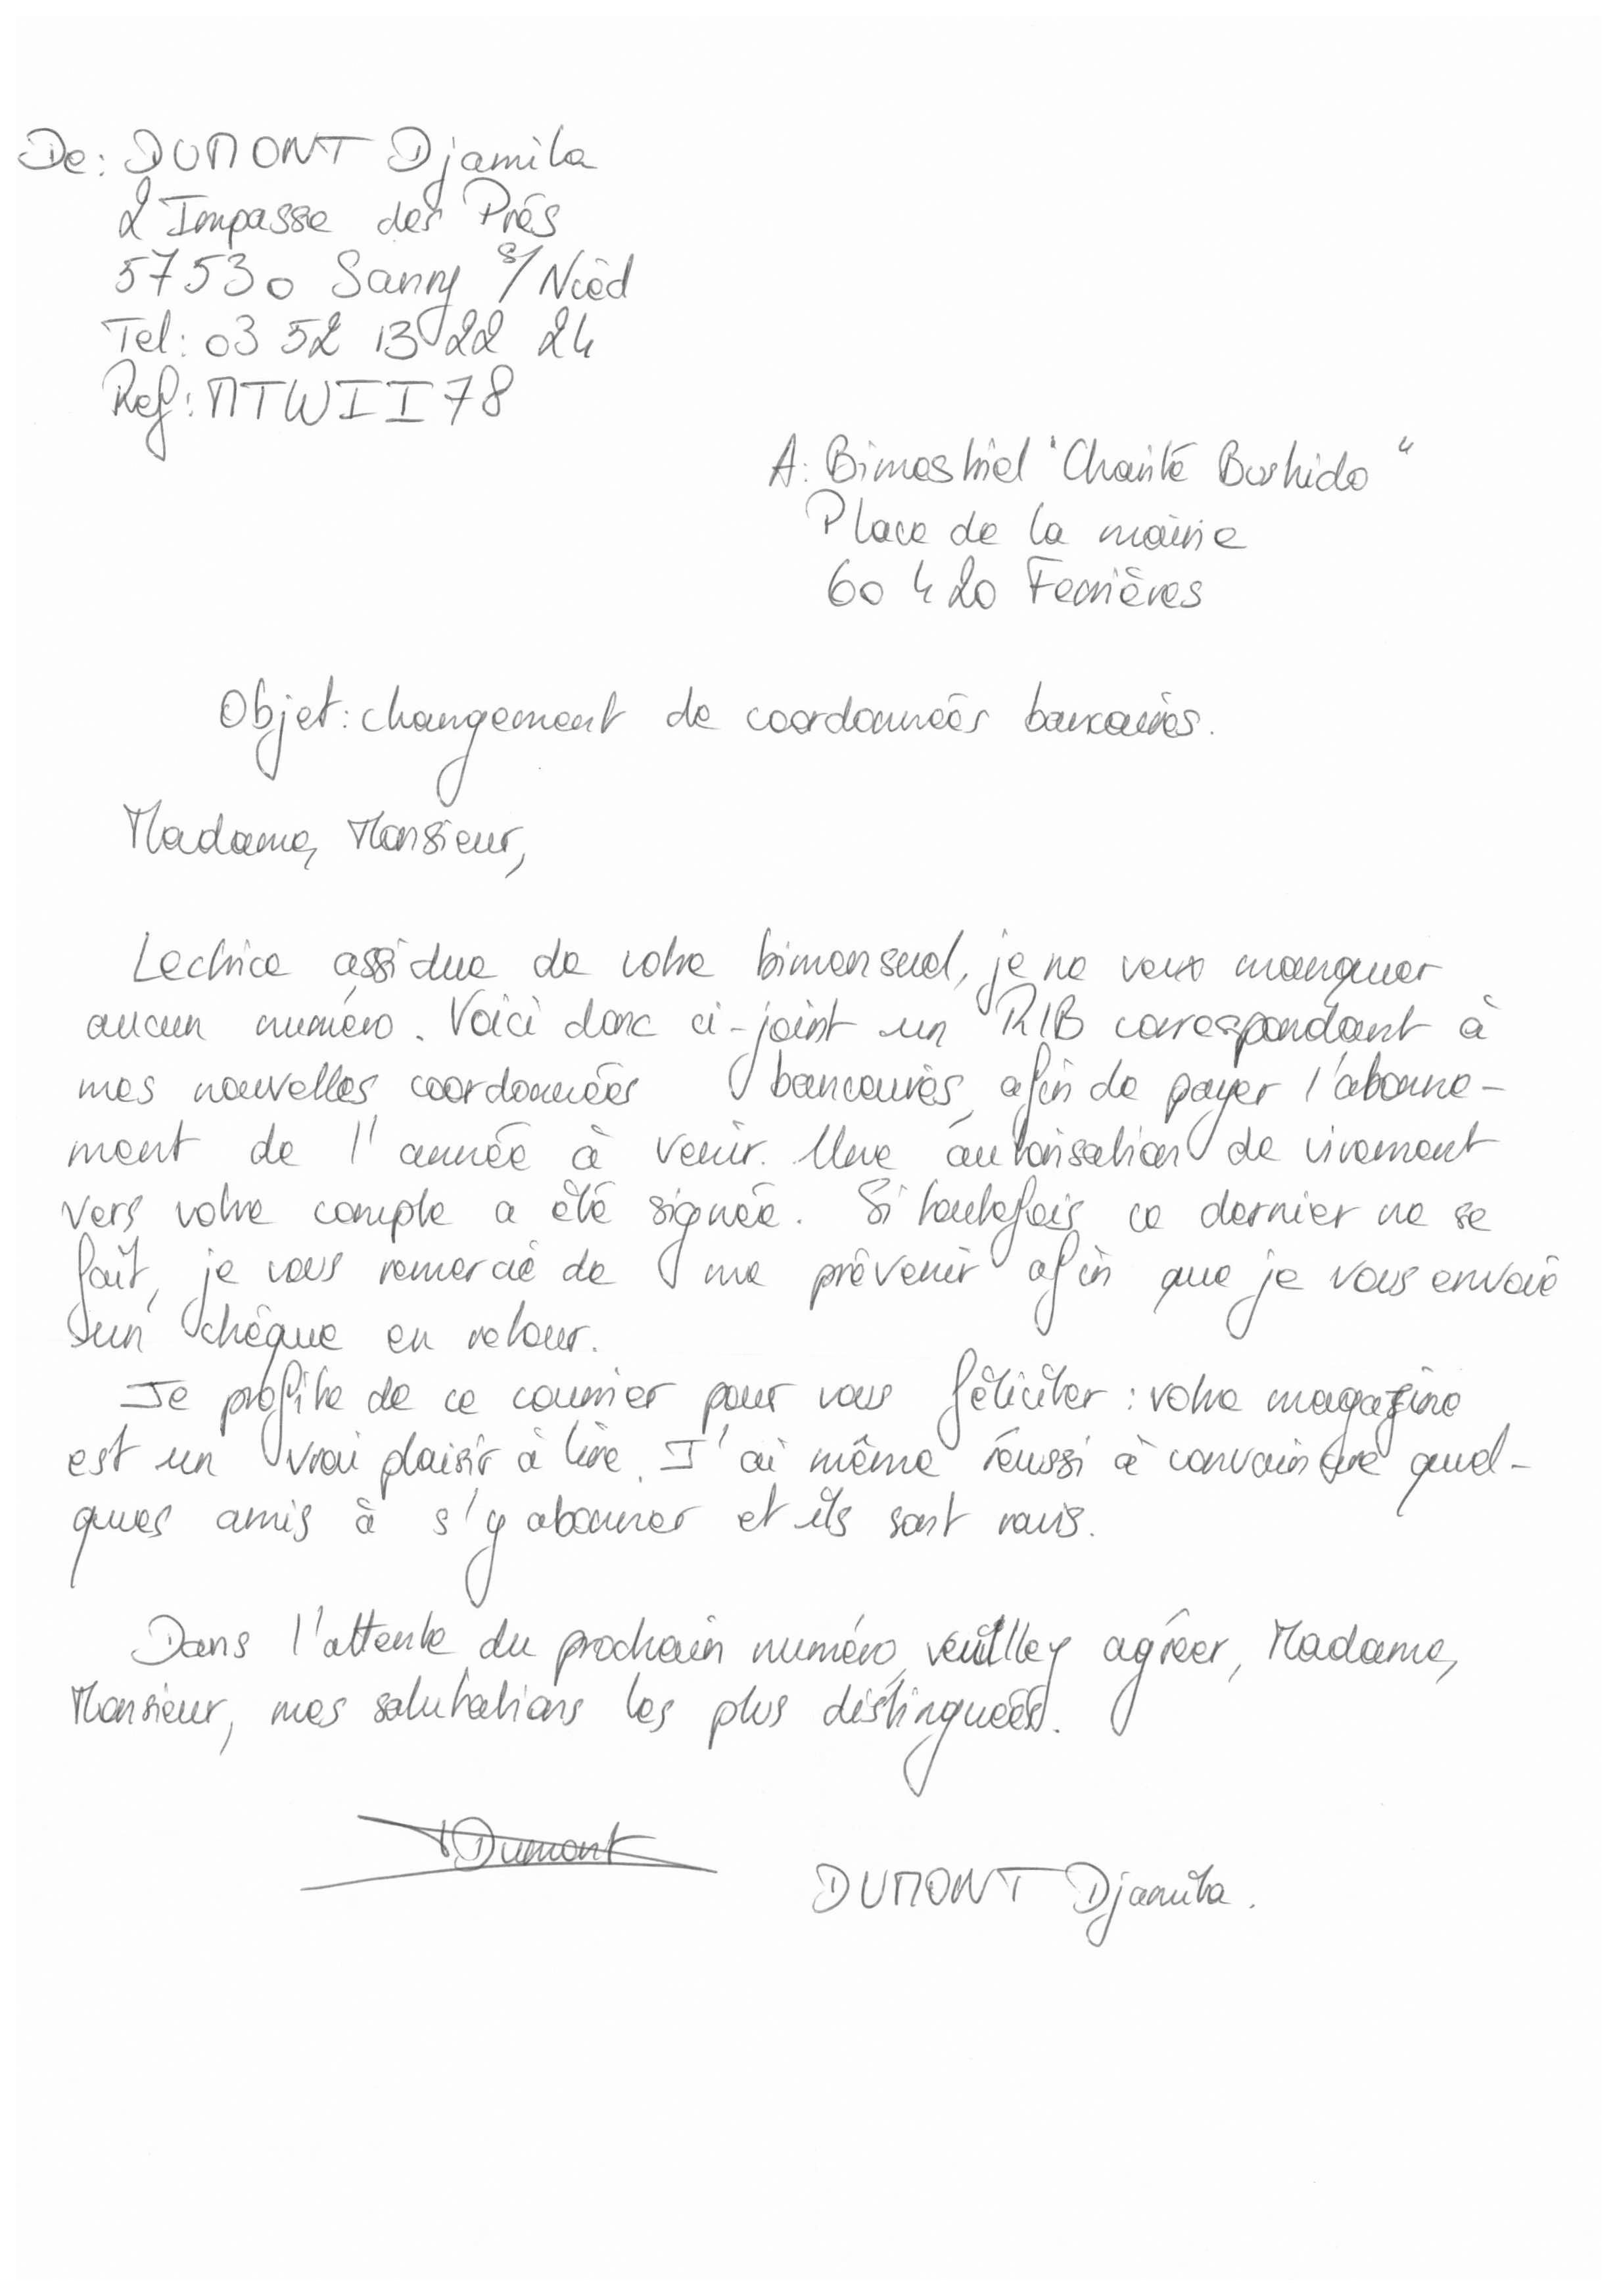 De: DUMONT Djamila
2 Impasse des Prés
57530 Sanry s/ Nied
Tel: 03 52 13 22 24
Ref: MTWII78
A: Bimestriel "Charité Bushido"
Place de la mairie
60 420 Ferrières
Objet: changement de coordonnées bancaires.
Madame, Monsieur,
Lectrice assidue de votre bimensuel, je ne veux manquer
aucun numéro. Voici donc ci-joint un RIB correspondant à
mes nouvelles coordonnées bancaires, afin de payer l'abonne-
ment de l'année à venir. Une autorisation de virement
vers votre compte a été signée. Si toutefois ce dernier ne se
fait, je vous remercie de me prévenir afin que je vous envoie
un chèque en retour.
Je profite de ce courrier pour vous féliciter : votre magazine
est un vrai plaisir à lire. J'ai même réussi à convaincre quel-
ques amis à s'y abonner et ils sont ravis.
Dans l'attente du prochain numéro, veuillez agréer, Madame,
Monsieur, mes salutations les plus distinguées.
Dumont
DUMONT Djamila.